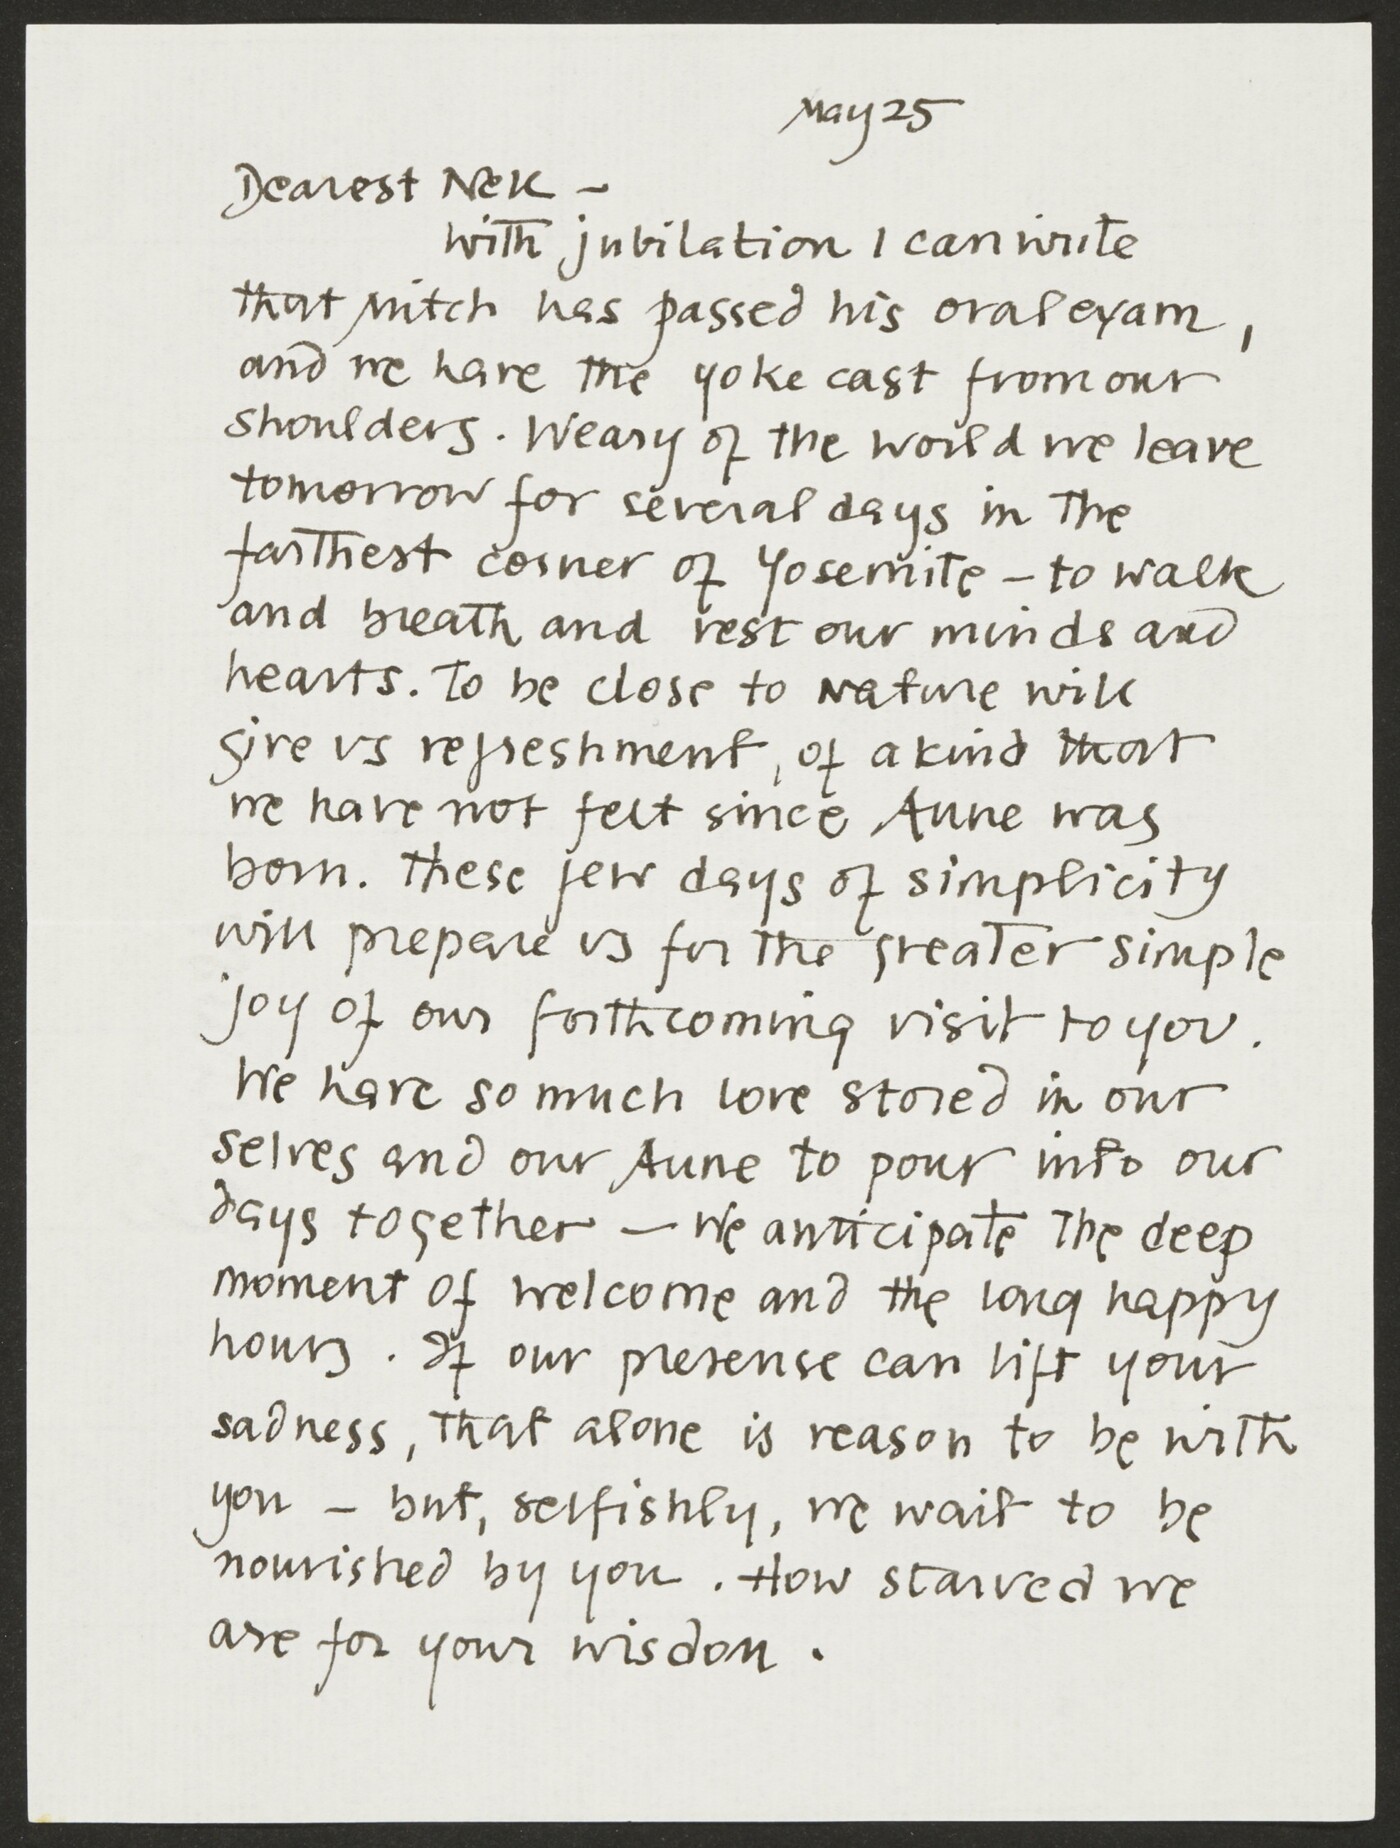 May 25
Dearest Nek –
with jubilation I can write
that Mitch has passed his oral exam,
and we have the yoke cast from our
shoulders. Weary of the world we leave
tomorrow for several days in the
farthest corner of Yosemite – to walk
and breath and rest our minds and
hearts. To be close to Nature will
give us refreshment, of a kind that
we have not felt since Aune was
born. These few days of simplicity
will prepare us for the greater simple
joy of our forthcoming visit to you.
We have so much love stored in our
selves and our Aune to pour into our
days together – We anticipate the deep
moment of welcome and the long happy
hours. If our presense can lift your
sadness, that alone is reason to be with
you – but, selfishly, we wait to be
nourished by you. How starved we
are for your wisdom.